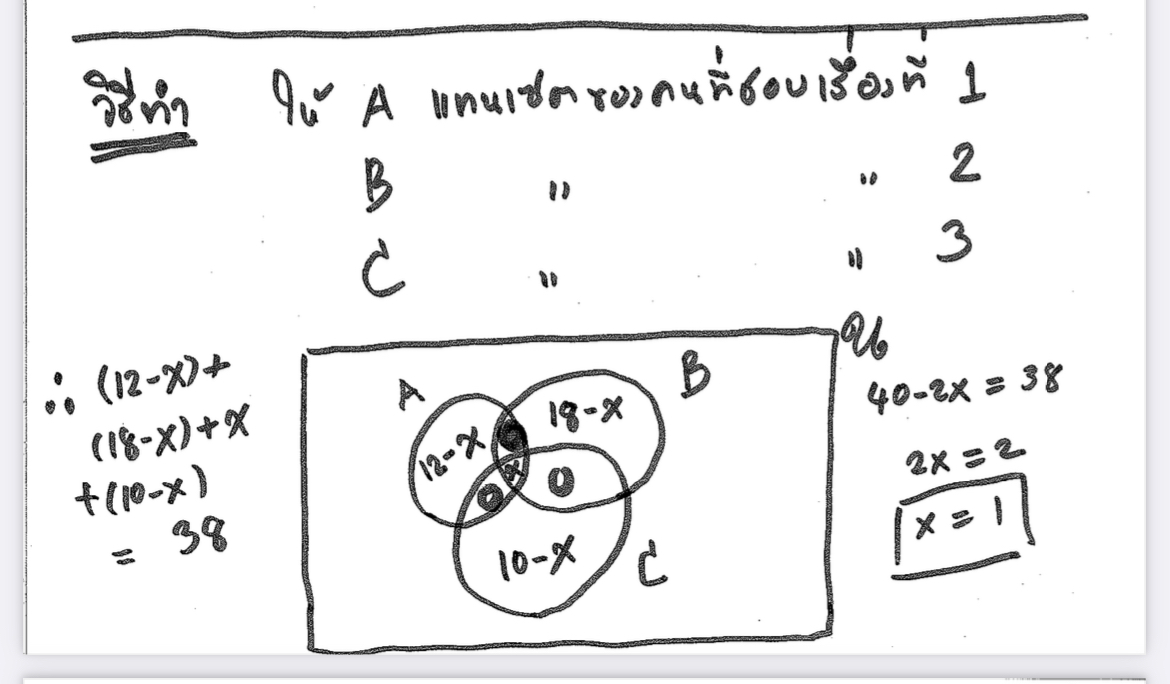 วิธีทำ ให้ A แทนเซตของคนที่ชอบเรื่องที่ 1
B " " 2
C " " 3
∴ (12-x)+
(18-x)+x
+(10-x)
= 38
A
B
U
12-x
0
18-x
x
0
0
10-x
C
40-2x = 38
2x = 2
x = 1